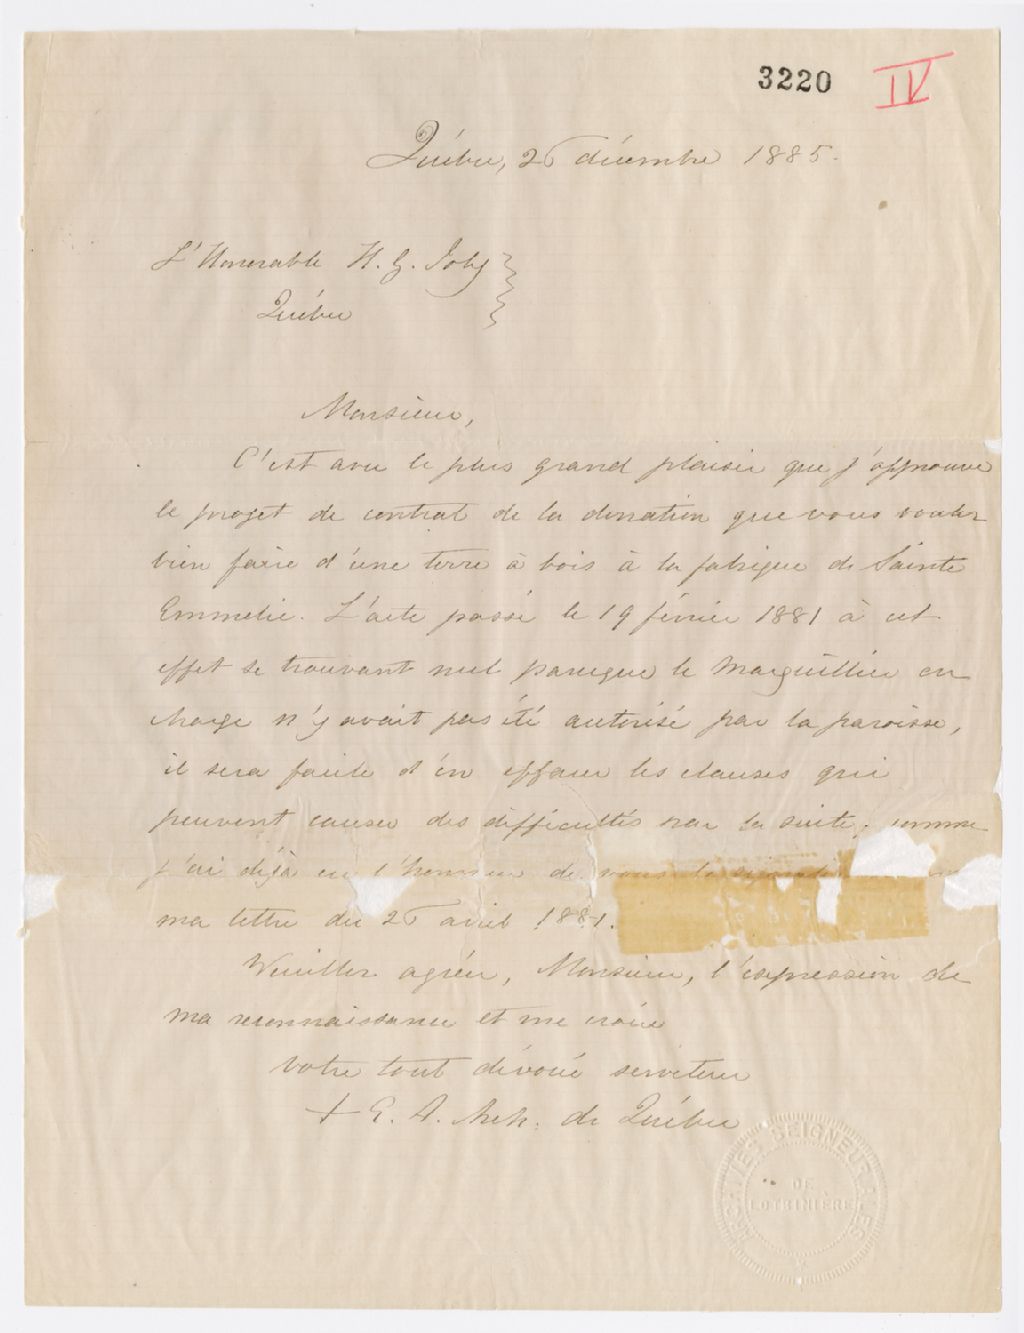 3220 IV
Québec, 26 décembre 1885.
L'Honorable H. G. Joly
Québec
Monsieur,
C'est avec le plus grand plaisir que j'approuve
le projet de contrat de la donation que vous voulez
bien faire d'une terre à bois à la fabrique de Sainte
Emmelie. L'acte passé le 19 février 1881 à cet
effet se trouvant nul parceque le Marguillier en
charge n'y avait pas été autorisé par la paroisse,
il sera facile d'en effacer les clauses qui
peuvent causer des difficultés par la suite, comme
j'ai déjà eu l'honneur de vous le
ma lettre du 26 avril 1881.
Veuillez agréer, Monsieur, l'expression de
ma reconnaissance et me croire
Votre tout dévoué serviteur
+ E. A. Arch. de Québec
ARCHIVES SEIGNEURIALES
DE
LOTBINIÈRE